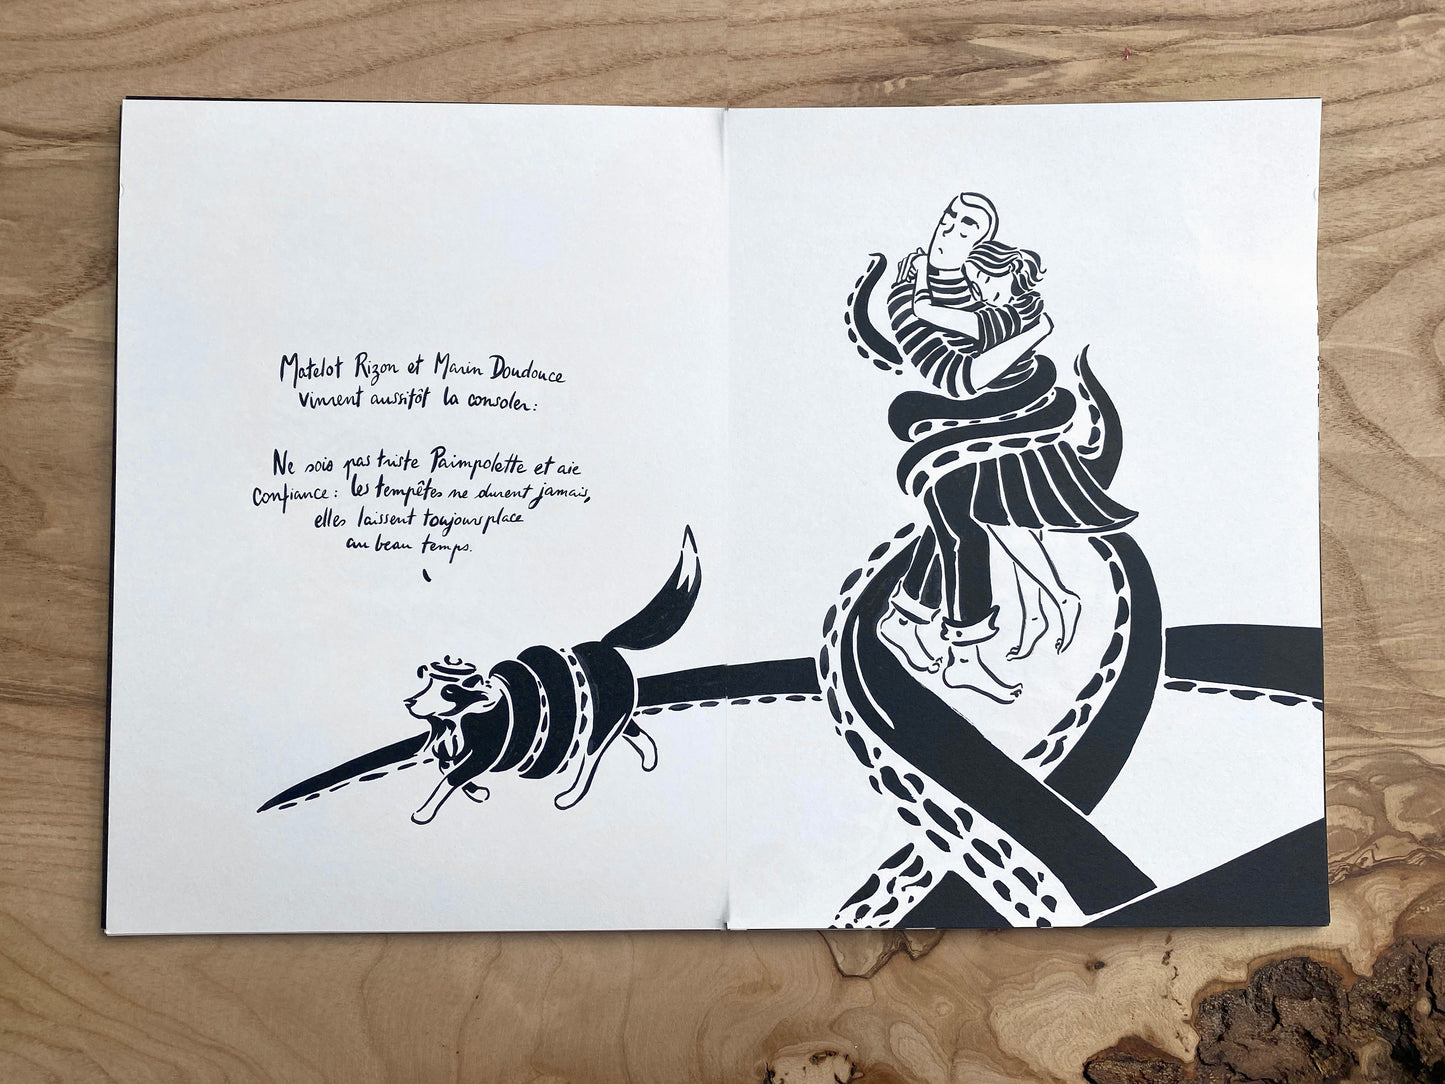 Matelot Rizon et Marin Doudouce
vinrent aussitôt la consoler :
Ne sois pas triste Paimpolette et aie
confiance : les tempêtes ne durent jamais,
elles laissent toujours place
au beau temps.